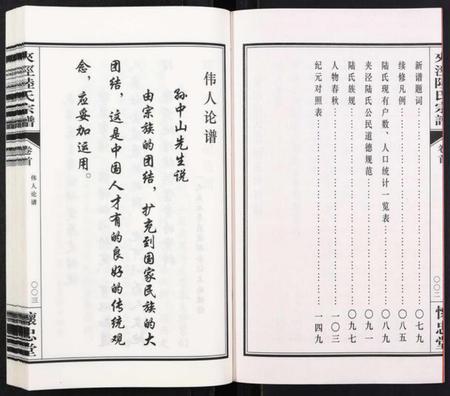 夾涇陸氏宗譜
卷首
〇〇二
懷忠堂
新谱题词……………〇七九
续修凡例……………〇八五
陆氏现有户数、人口统计一览表……………〇八九
夹泾陆氏公民道德规范……………〇九一
陆氏族规……………〇九七
人物春秋……………一〇三
纪元对照表……………一四九
伟人论谱
孙中山先生说
由宗族的团结，扩充到国家民族的大
团结，这是中国人才有的良好的传统观
念，应妥加运用。
夾涇陸氏宗譜
卷首
伟人论谱
〇〇三
懷忠堂